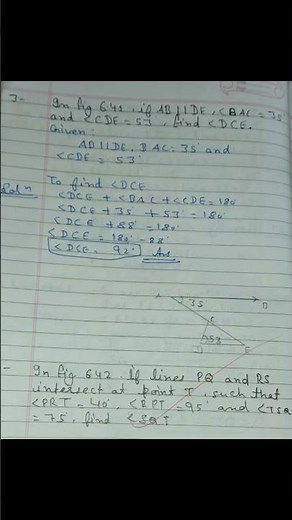 3- In fig 6.41, if AB||DE, <BAC = 35
and <CDE = 53°, find <DCE.
Given:
AB||DE, BAC = 35 and
<CDE = 53°
To find <DCE
Solⁿ <DCE + <BAC + <CDE = 180
<DCE + 35° + 53° = 180°
<DCE + 88° = 180°
<DCE = 180° - 88°
<DCE = 92° Ans
A 35 B
C
53
D E
- In fig 6.42. If lines PQ and RS
intersect at point T, such that
<PRT = 40°, <RPT = 95° and <TSQ
= 75°, find <SQT